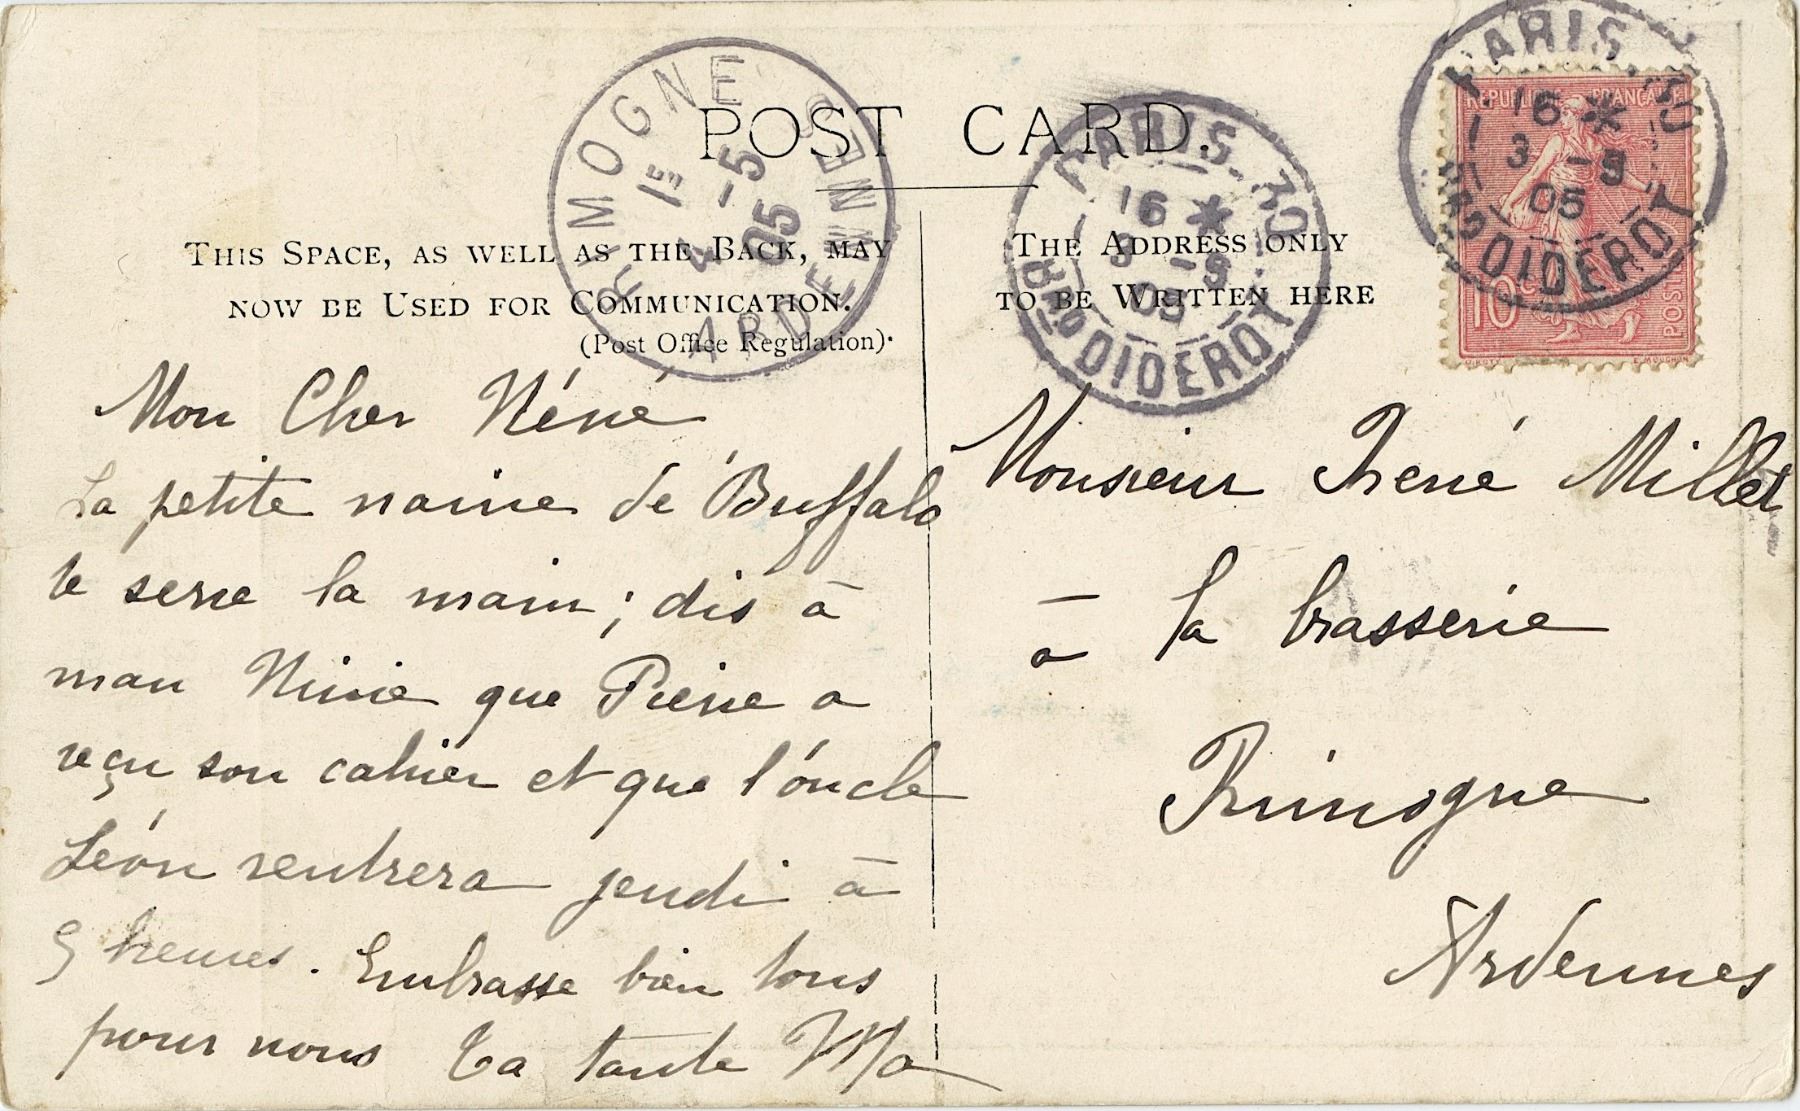 POST CARD.
THIS SPACE, AS WELL AS THE BACK, MAY
NOW BE USED FOR COMMUNICATION.
(Post Office Regulation).
THE ADDRESS ONLY
TO BE WRITTEN HERE
RIMOGNE
1E
4 -5
05
ARDENNES
PARIS-30
16 *
3 -5
05
BRD DIDEROT
PARIS-30
16 *
3 -5
05
BRD DIDEROT
REPUBLIQUE FRANÇAISE
10
POSTES
O. ROTY
E. MOUCHON
Mon Cher Néné
La petite naine de Buffalo
te serre la main; dis à
man Ninie que Pierre a
reçu son cahier et que l'oncle
Léon rentrera jeudi à
5 heures. Embrasse bien tous
pour nous Ta tante Ma
Monsieur René Millet
à la brasserie
Rimogne
Ardennes